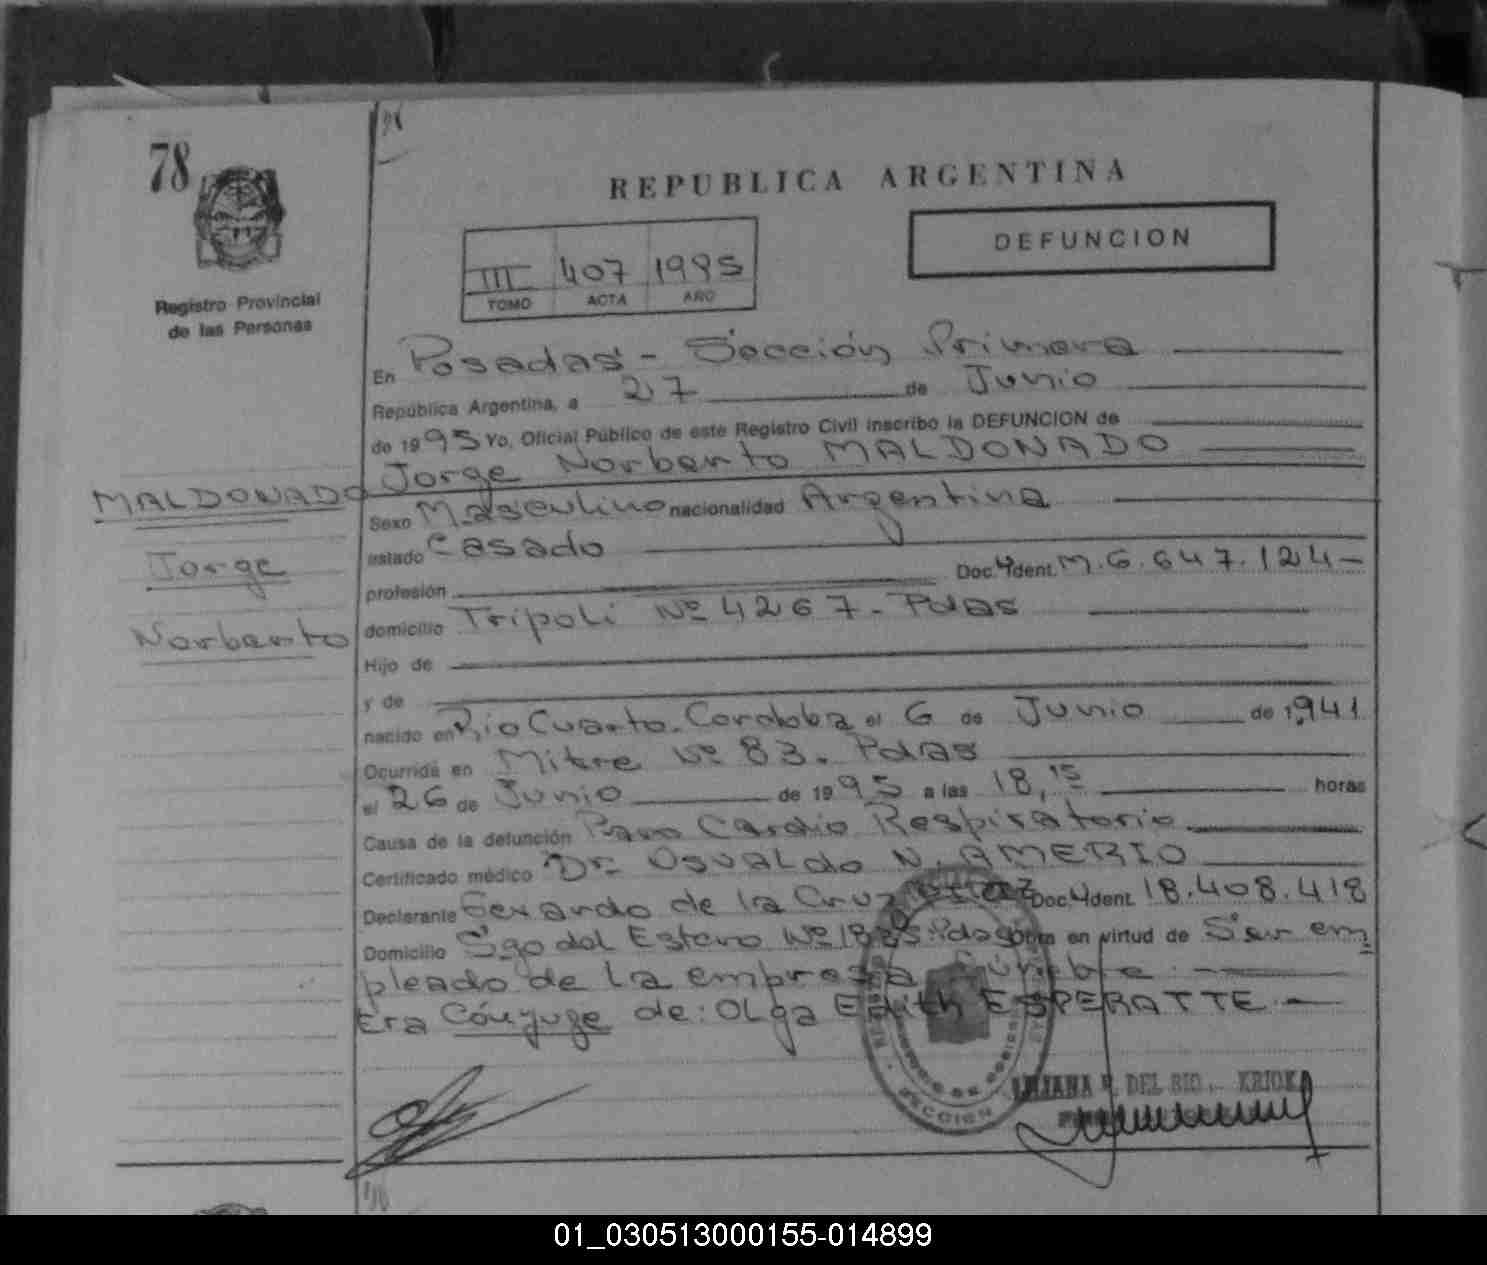 78
REPUBLICA ARGENTINA
DEFUNCION
III 407 1995
TOMO ACTA AÑO
Registro Provincial
de las Personas
En Posadas - Sección Primera
República Argentina, a 27 de Junio
de 1995 Yo, Oficial Público de este Registro Civil inscribo la DEFUNCION de
Jorge Norberto MALDONADO
MALDONADO
Jorge
Norberto
Sexo Masculino nacionalidad Argentina
estado Casado
profesión Doc. Ident. M. 6.647.124-
domicilio Tripoli Nº 4267. Pdas
Hijo de
y de
nacido en Río Cuarto. Cordoba el 6 de Junio de 1941
Ocurrida en Mitre Nº 83. Pdas
el 26 de Junio de 1995 a las 18,15 horas
Causa de la defunción Paro Cardio Respiratorio
Certificado médico Dr. Osvaldo N. AMERIO
Declarante Gerardo de la Cruz Doc. Ident. 18.408.418
Domicilio Sgo del Estero Nº Pdas Obra en virtud de Ser em=
pleado de la empresa fúnebre
Era Cónyuge de: Olga Edith ESPERATTE -
SECCION
LILIANA R. DEL RIO
01_030513000155-014899